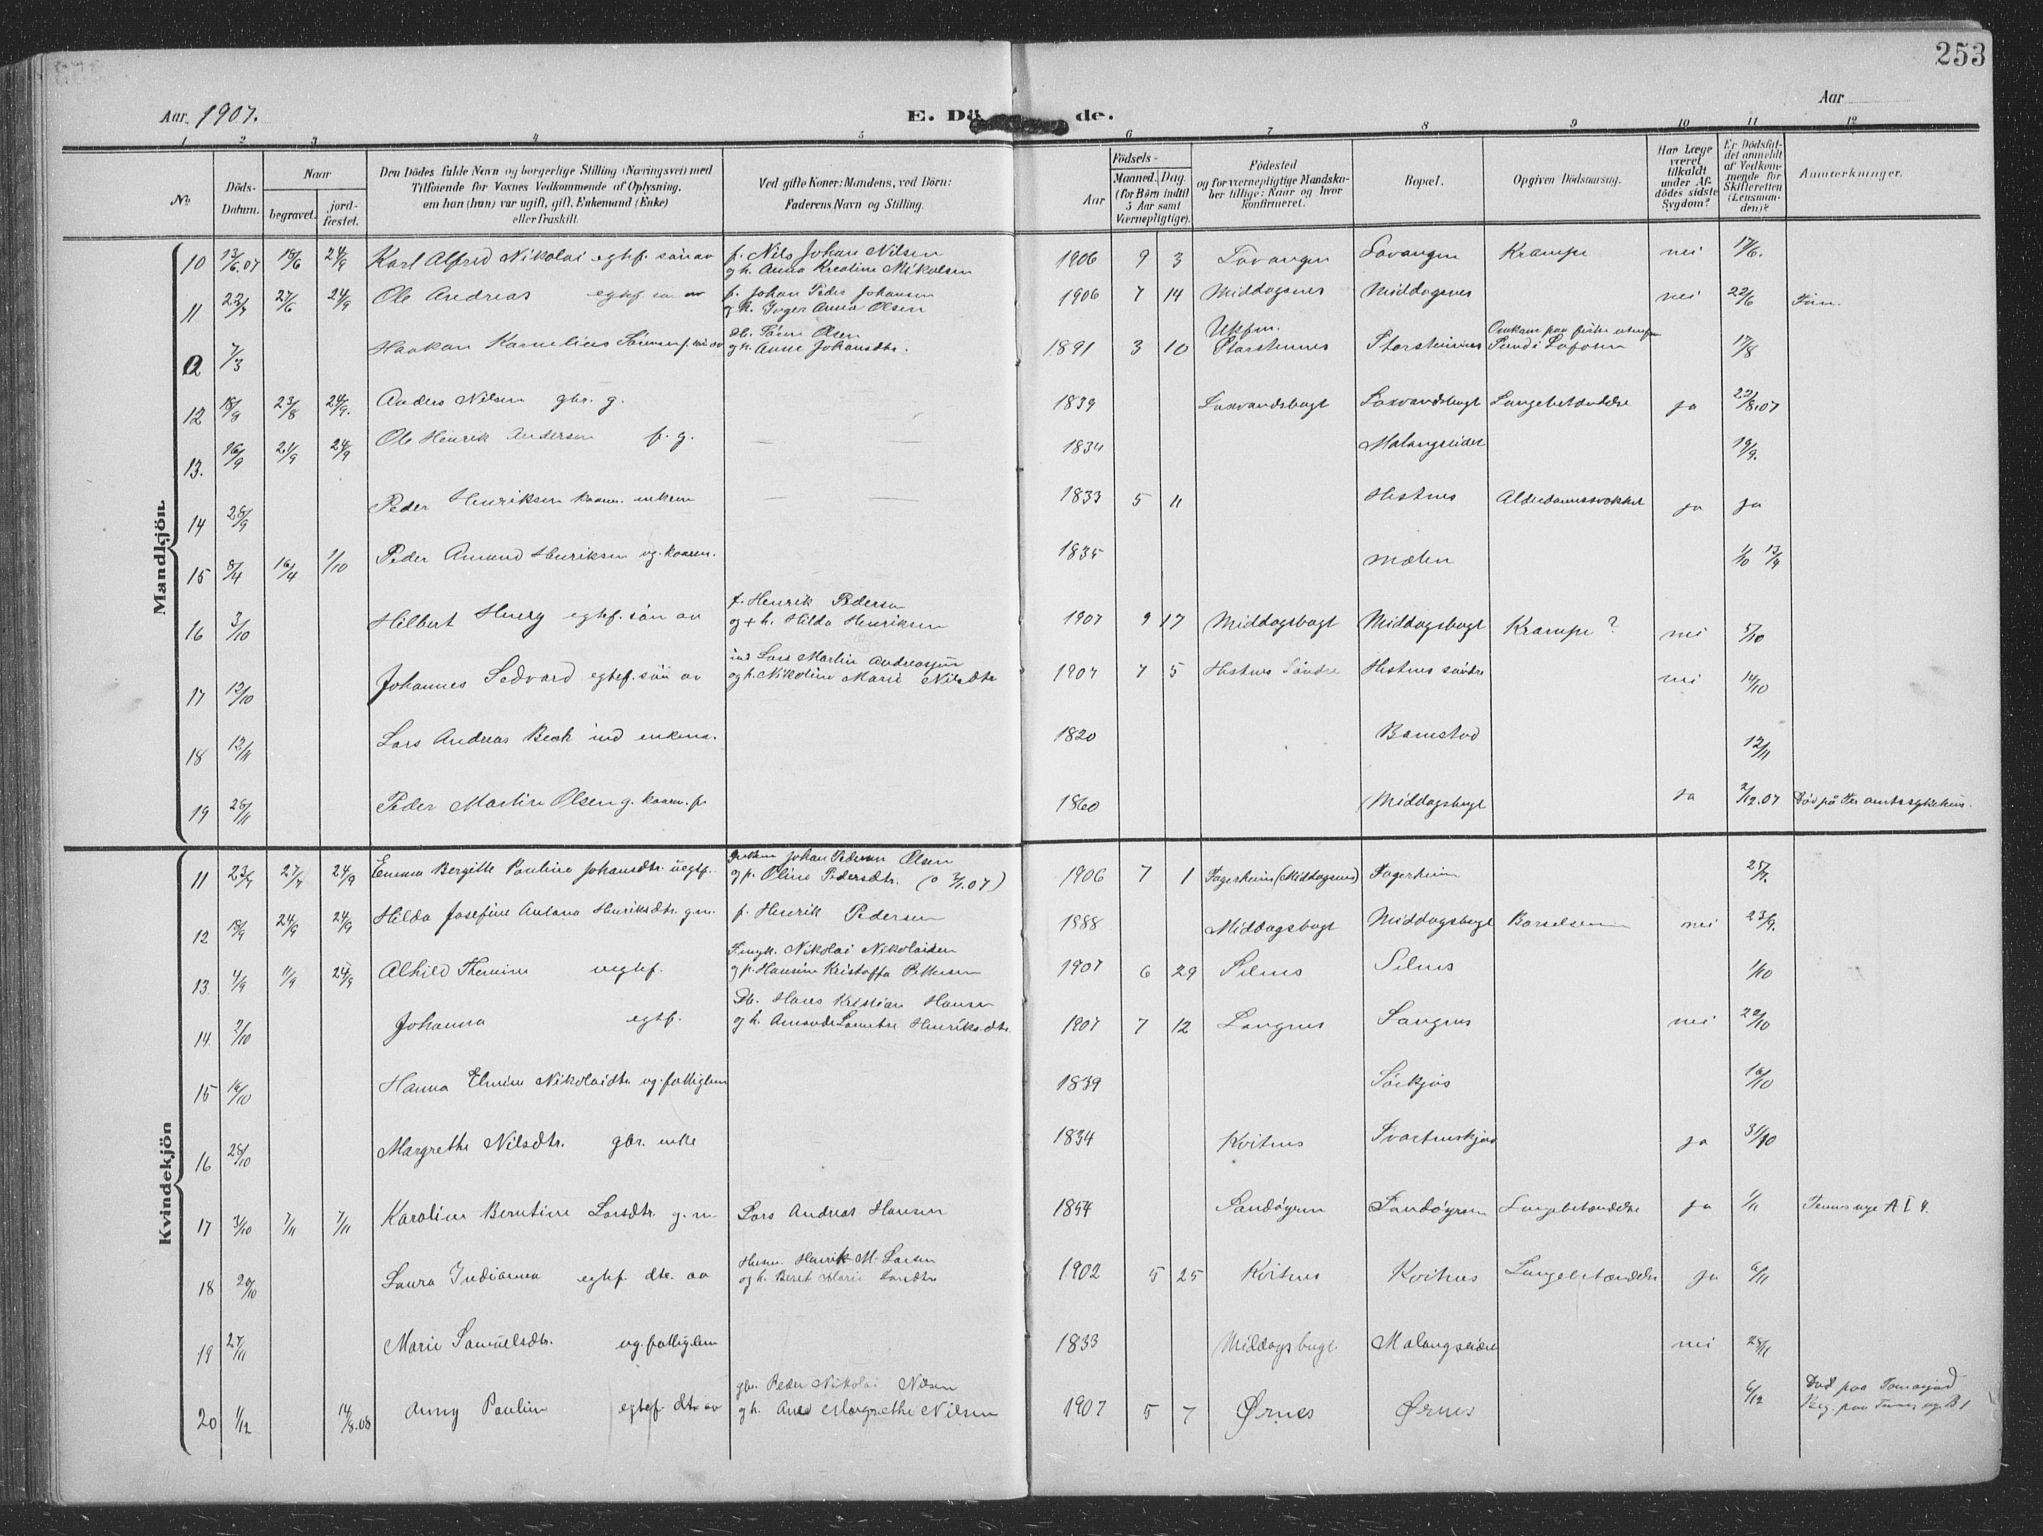 253
Aar 1907.
E. Dö de.
Aar
1 2 3 4 5 6 7 8 9 10 11 12
No
Döds-Datum.
Naar
begravet.
jord-fæstet.
Den Dödes fulde Navn og borgerlige Stilling (Næringsvei) med
Tilföiende for Voxnes Vedkommende af Oplysning,
om han (hun) var ugift, gift, Enkemand (Enke)
eller fraskilt.
Ved gifte Koner: Mandens, ved Börn:
Faderens Navn og Stilling.
Födsels-
Aar
Maaned. Dag.
(for Börn indtil
5 Aar samt
Værnepligtige).
Födested
og for værnepligtige Mandska-
ber tillige: Naar og hvor
konfirmeret.
Bopæl.
Opgiven Dödsaarsag.
Har Læge
været
tilkaldt
under Af-
dödes sidste
Sygdom?
Er Dödsfal-
det anmeldt
af Vedkom-
mende for
Skifteretten
(Lensman-
den)?
Anmærkninger.
Mandkjön.
f. Nils Johan Nilsen
10 13/6.07 18/6 24/9 Karl Alfred Nikolai egtef. sön av og h. Anna Krestine Mikalsen 1906 9 3 Lavangen Lavangen Krampe nei 17/6.
f. Johan Peder Johansen
11 27/6 24/9 Ole Andreas egtef. sön av og h. Inger Anna Olsen 1906 7 14 Middagsnes Middagsnes nei 22/6
Olsen
7/3 Haakon Kornelius og h. Anne Johansdtr. 1891 3 10 Storsteinnes Storsteinnes Omkom paa fiske 17/8
12 18/8 23/8 24/9. Anders Nilsen gbr. g. 1839 Laxvandsbugt Laxvandsbugt Lungebetændelse ja 22/8.07
13. 16/9 21/9 24/9 Ole Henrik Andersen f. g. 1834 Malangseidet 19/9.
14 28/9 Peder Henriksen kaarm. enkem 1833 5 11 Hestnes Alderdomssvækkel ja ja
15 8/4 16/4 1/10 Peder Amund Henriksen ug. kaarm. 1835 Mælen 1/10
f. Henrik Pedersen
16 3/10 Hilbert Henry egtef. sön av og h. Hilda Henriksen 1907 9 17 Middagsbugt Middagsbugt Krampe? nei 5/10
ind Lars Martin Andreassen
17 12/10 Johannes Edvard egtef. sön av og h. Nikoline Marie Nilsdtr 1907 7 5 Hestnes Söndre Hestnes söndre nei 14/10
18 12/11 Lars Andreas Beck ind enkem. 1820 12/11
19 26/11 Peder Martin Olsen g. kaarm. f. 1860 Middagsbugt Ja 2/12.07 Död på amtssykehus.
Kvindekjön
Johan Pedersen Olsen
11 23/7 27/7 24/9 Emma Bergitte Pauline Johansdtr. uegtef. og p. Oline Pedersdtr. 1906 7 1 Fagerheim (Middagsnes) Fagerheim 25/7.
12 18/9 24/9 24/9 Hilda Josefine Antona Henriksdtr. g.m. f. Henrik Pedersen 1888 Middagsbugt Middagsbugt Barselseng nei 23/9.
Nikolai Nikolaisen
13. 4/9 11/9 24/9 Alhild uegtef. og p. Hansine Kristoffa Pettersen 1907 6 29 Selnes Selnes 1/10
Hans Kristian Hansen
14. 2/10 Johanna egtef. og h. Amanda Henriksdtr. 1907 7 12 Langnes Langnes nei 22/10
15 16/10 Hanna Elmine Nikolaidtr. ug. fattiglem 1839 Sörkjos 16/10
16 28/10 Margrethe Nilsdtr. gbr. enke 1834 Kvitnes ja 31/10
17 3/10 7/11 7/11 Karoline Berntine Larsdtr. g. m. Lars Andreas Hansen 1854 Sandöyren Sandöyren Lungebetændelse ja 1/11
Husm. Henrik M. Larsen
18 20/10 Laura Indianna egtef. dtr. av og h. Beret Marie 1902 5 25 Kvitnes Kvitnes Lungebetændelse Ja 6/11
19 27/11 Marie Samuelsdtr. ug. fattiglem 1833 Middagsbugt Malangseidet nei 28/11
gbr. Peder Nikolai Nilsen
20 1/12 14/8.08 Anny Pauline egtef. dtr. av og h. Ane Margrethe Nilsen 1907 5 7 Ørnes Ørnes 6/12 Död paa